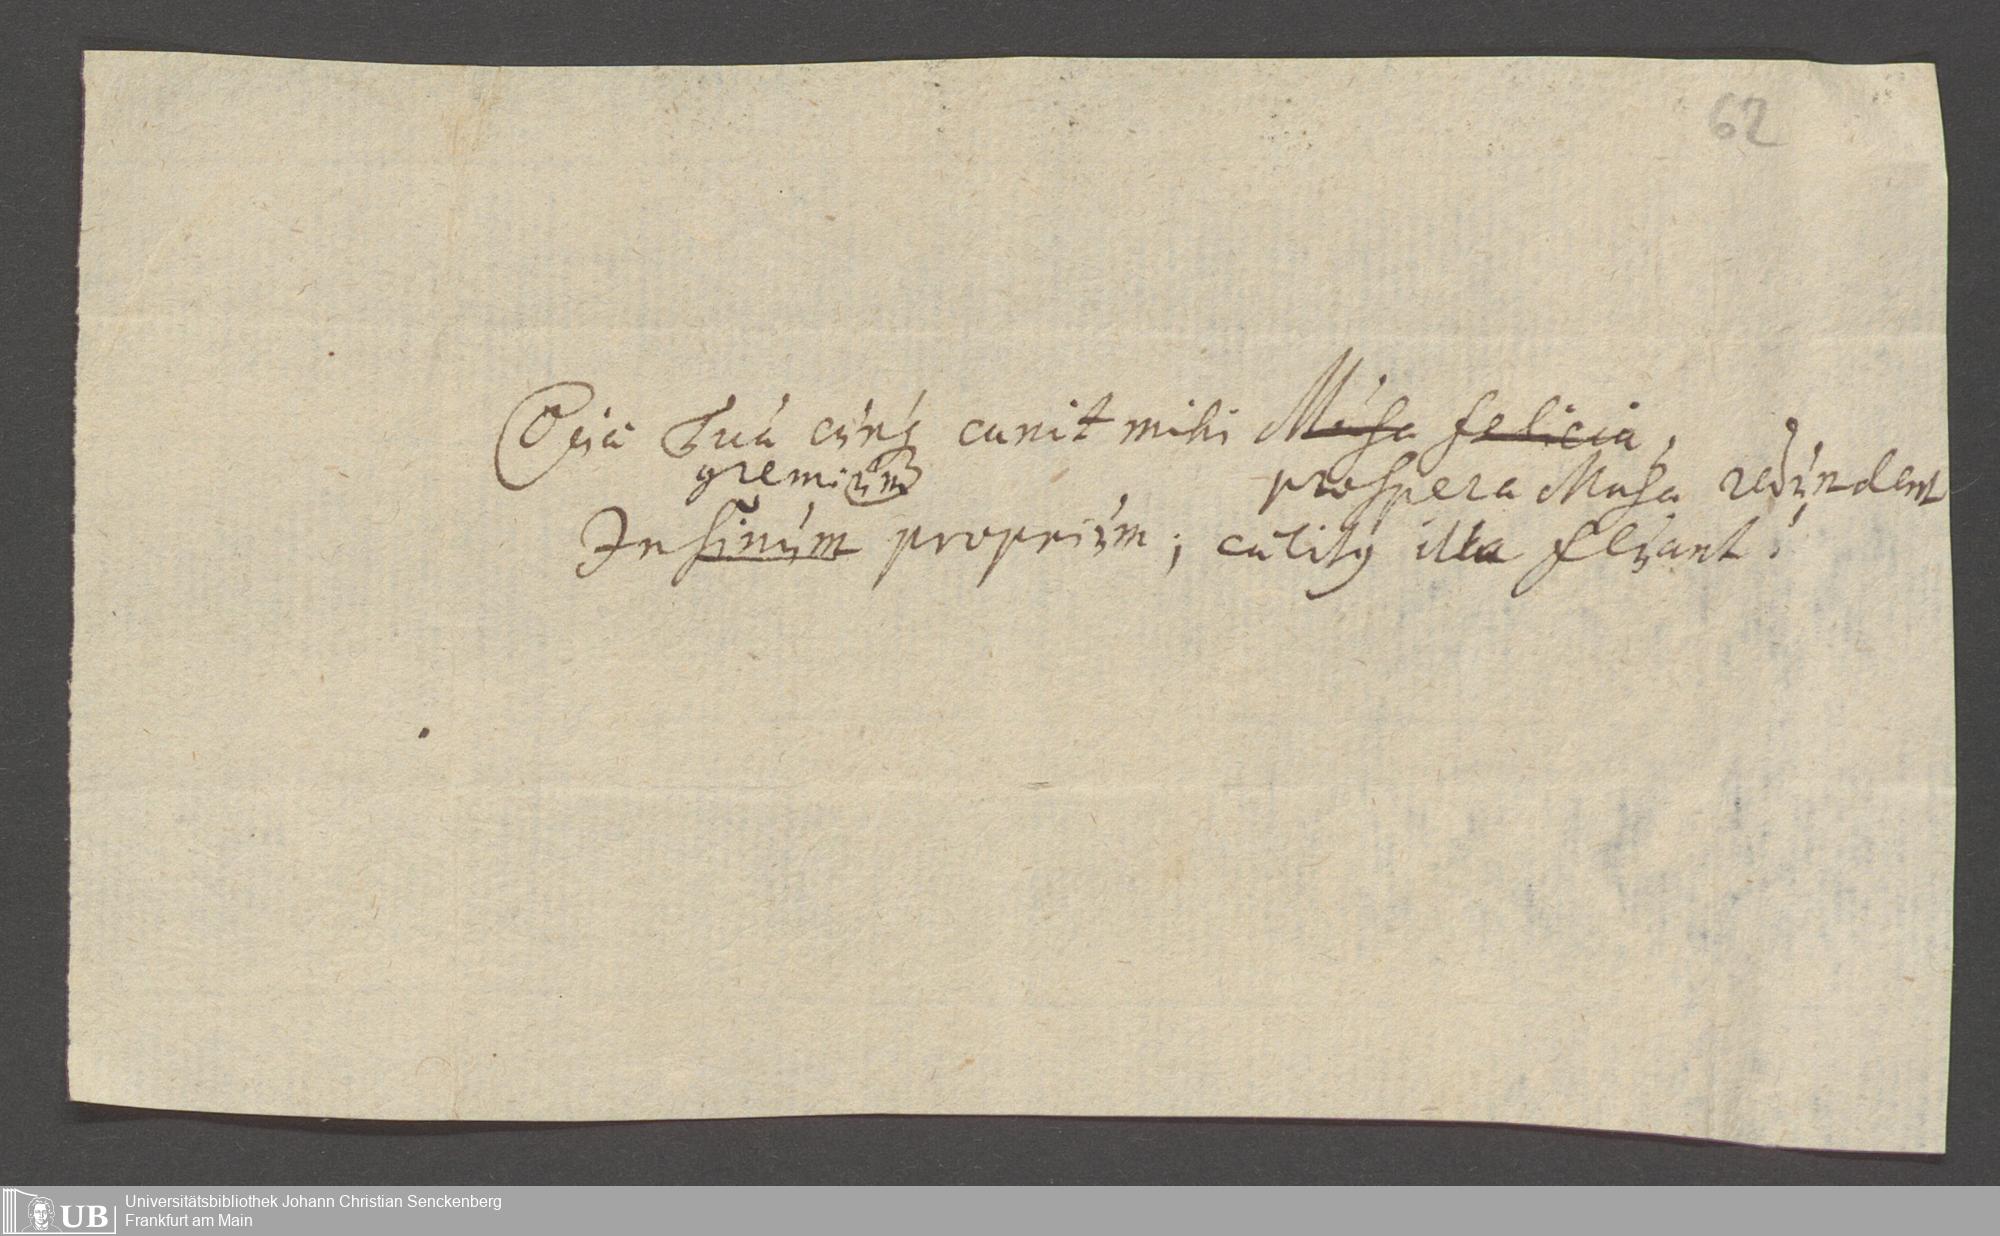 62
Quæ Tua cunq canit mihi Musa felicia,
gremium prospera Musa redundent
In sinum proprium; cælitus illa fluant!
UB Universitätsbibliothek Johann Christian Senckenberg
Frankfurt am Main